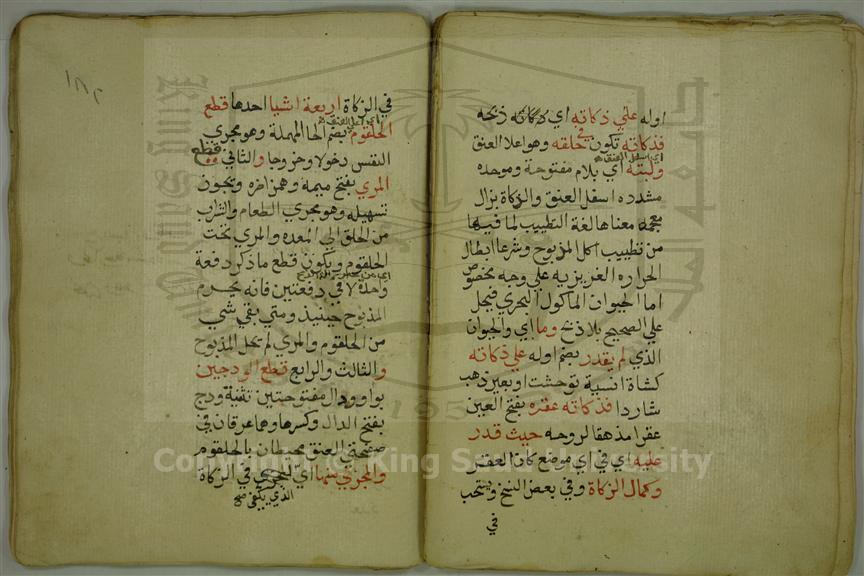 اوله علي ذكاته اي ذكاته ذبحه
فذكاته تكون في حلقه وهو اعلا العنق
اي اسفل العنق
ولبته اي بلام مفتوحة وموحده
مشدده اسفل العنق والزكاة بزال
معجمه معناها لغة التطييب لما فيها
من تطييب اكل المذبوح وشرعا ابطال
الحراره الغريزيه علي وجه مخصوص
اما الحيوان الماكول البحري فيحل
علي الصحيح بلا ذبح وما اي والحيوان
الذي لم يقدر بضم اوله علي ذكاته
كشاة انسية توحشت او بعير ذهب
شاردا فذكاته عقره بفتح العين
عقرا مذهقا لروحه حيث قدر
عليه اي في اي موضع كان العقر
وكمال الزكاة وفي بعض النسخ ويستحب
في
١٨٦
في الزكاة اربعة اشيا احدها قطع
اي اعلا العنق
الحلقوم بضم الحا المهملة وهو مجري
النفس دخولا وخروجا والثاني قطع
المري بفتح ميمه وهمز اخره ويجوز
تسهيله وهو مجري الطعام والشراب
من الحلق الي المعده والمري تحت
الحلقوم ويكون قطع ما ذكر دفعة
واحدة لا في دفعتين فانه يحرم
المذبوح حينيذ ومتي بقي شي
من الحلقوم والمري لم يحل المذبوح
والثالث والرابع قطع الودجين
بواو ودال مفتوحتين تثنية ودج
بفتح الدال وكسرها وهما عرقان في
صفحتي العنق محيطان بالحلقوم
والمجزي منها اي المجزي في الزكاة
الذي يكفي صح
Copyright © King Saud University